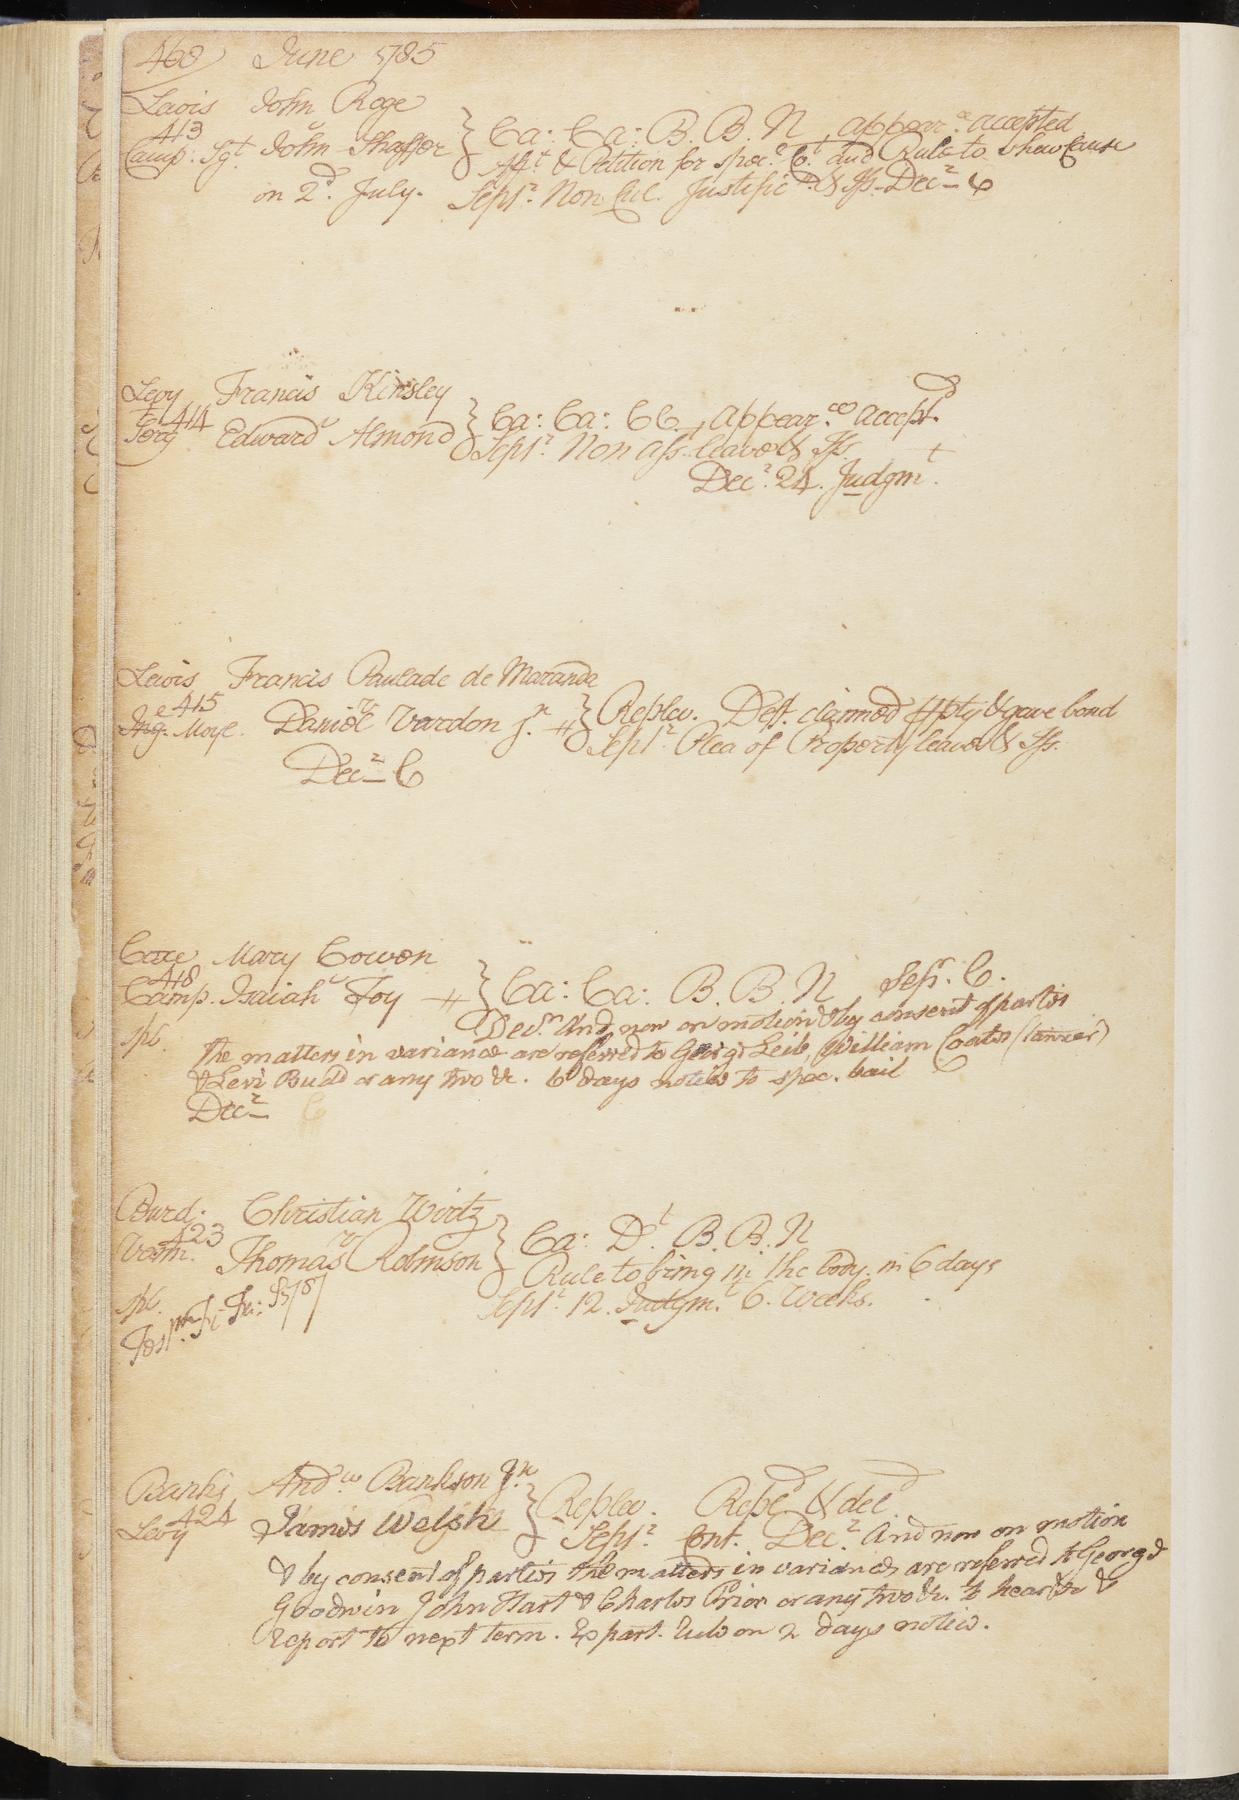 468 June 1785
Lewis John Roge
413 v
Camp. Sgt John Shaffer } Ca: Ca: B. B. N appear.ce accepted
Afft & Petition for spec.l Ct. and Rule to shew Cause
on 2d. July. Sepr. Non Cul. Justific & Iss. Decr 6
Levy Francis Kinsley
414 v
Serg Edward Almond } Ca: Ca: CC, appear.ce accept.d
Sepr. Non ass. leave & Iss.
Decr. 24. Judgmt.
Lewis Francis Paulade de Maranda
415 v
Moyl. Daniel Vardon jr. } Replev. Deft. claimed ppty & gave bond
Sepr. Plea of Property leave & Iss.
Decr C
Mary Cowen
418 v
Camp. Isaiah Foy } Ca: Ca: B. B. N Sepr. C.
spl. Decr. And now on motion & by consent of parties
the matters in variance are referred to George Leib, William Coates (tanner)
& Levi Budd or any two &c. 6 days notice to spec. bail
Decr C
Burd. Christian Wirtz
423 v
Thomas Robinson } Ca: Dt. B. B. N
Rule to bring in the body in 6 days
spl. Sepr. 12. Judgmt. 6. Weeks.
Fi: Fa: S. 787
Banks Andw Bankson Jr
424 v
Levy James Welsh } Replev. Repld & deld
Sepr. Cont. Decr. And now on motion
& by consent of parties the matters in variance are referred to George
Goodwin John Hart & Charles Prior or any two &c. to hear &c &
report to next term. Ex part. Rule on 2 days notice.